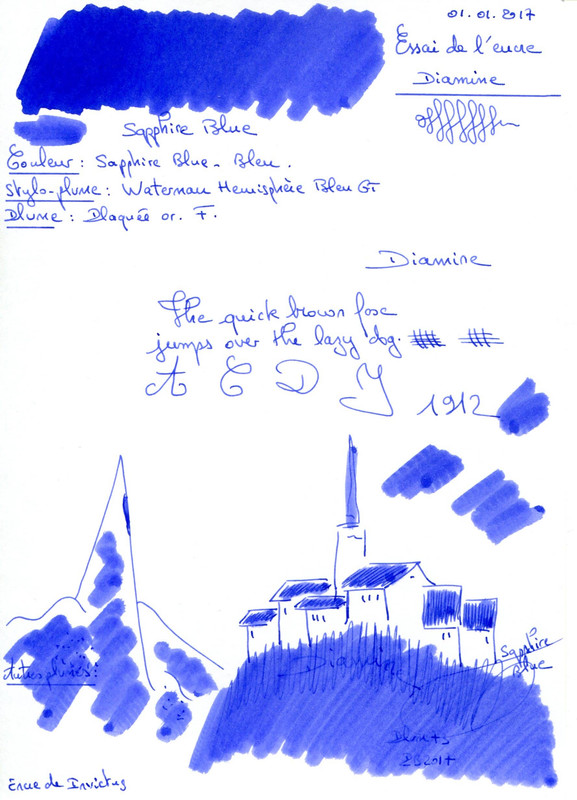 01.01.2017
Essai de l'encre
Diamine
Sapphire Blue
Couleur : Sapphire Blue - Bleu.
Stylo-plume : Waterman Hemisphère Bleu GT
Plume : Plaquée or. F.
Diamine
The quick brown fox
jumps over the lazy dog.
A E D Y
1912
Diamine
Sapphire
Blue
Autres plumes :
2017
Encre de Invictus